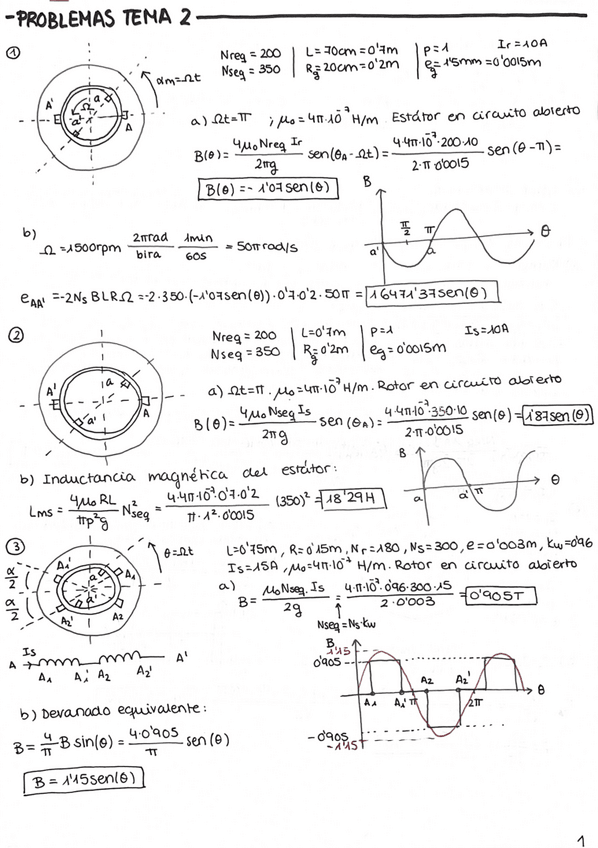 -PROBLEMAS TEMA 2
① Nreq = 200 | L = 70cm = 0'7m | P = 1 Ir = 10A
Nseq = 350 | Rg = 20cm = 0'2m | eg = 1'5mm = 0'0015m
αm = Ωt
A' a Ω a' A
a) Ωt = π ; μ₀ = 4π·10⁻⁷ H/m. Estátor en circuito abierto
B(θ) = 4μ₀ Nreq Ir / 2πg sen(θA - Ωt) = 4·4π·10⁻⁷·200·10 / 2·π·0'0015 sen(θ - π) =
B(θ) = - 1'07 sen(θ)
B
π/2 π θ
a' a
b) Ω = 1500rpm 2πrad / 1vira 1min / 60s = 50π rad/s
eAA' = -2Ns BLRΩ = -2·350·(-1'07sen(θ))·0'7·0'2·50π = 16471'37sen(θ)
② Nreq = 200 | L = 0'7m | P = 1 Is = 10A
Nseq = 350 | Rg = 0'2m | eg = 0'0015m
A' a a' A
a) Ωt = π. μ₀ = 4π·10⁻⁷ H/m. Rotor en circuito abierto
B(θ) = 4μ₀ Nseq Is / 2πg sen(θA) = 4·4π·10⁻⁷·350·10 / 2·π·0'0015 sen(θ) = 1'87sen(θ)
b) Inductancia magnética del estátor:
Lms = 4μ₀RL / πp²g N²seq = 4·4π·10⁻⁷·0'7·0'2 / π·1²·0'0015 (350)² = 18'29H
B
a a' π θ
③ L = 0'75m, R = 0'15m, Nr = 180, Ns = 300, e = 0'003m, kw = 0'96
Is = 15A, μ₀ = 4π·10⁻⁷ H/m. Rotor en circuito abierto
θ = Ωt
α/2
α/2
A1' A1 a a' A2' A2
a) B = μ₀Nseq·Is / 2g = 4·π·10⁻⁷·0'96·300·15 / 2·0'003 = 0'905T
Nseq = Ns·kw
Is
A A1 A1' A2 A2' A'
B
1'15
0'905
A1 A1' π A2 A2' 2π θ
-0'905
-1'15T
b) Devanado equivalente:
B = 4/π B sin(θ) = 4·0'905 / π sen(θ)
B = 1'15sen(θ)
1